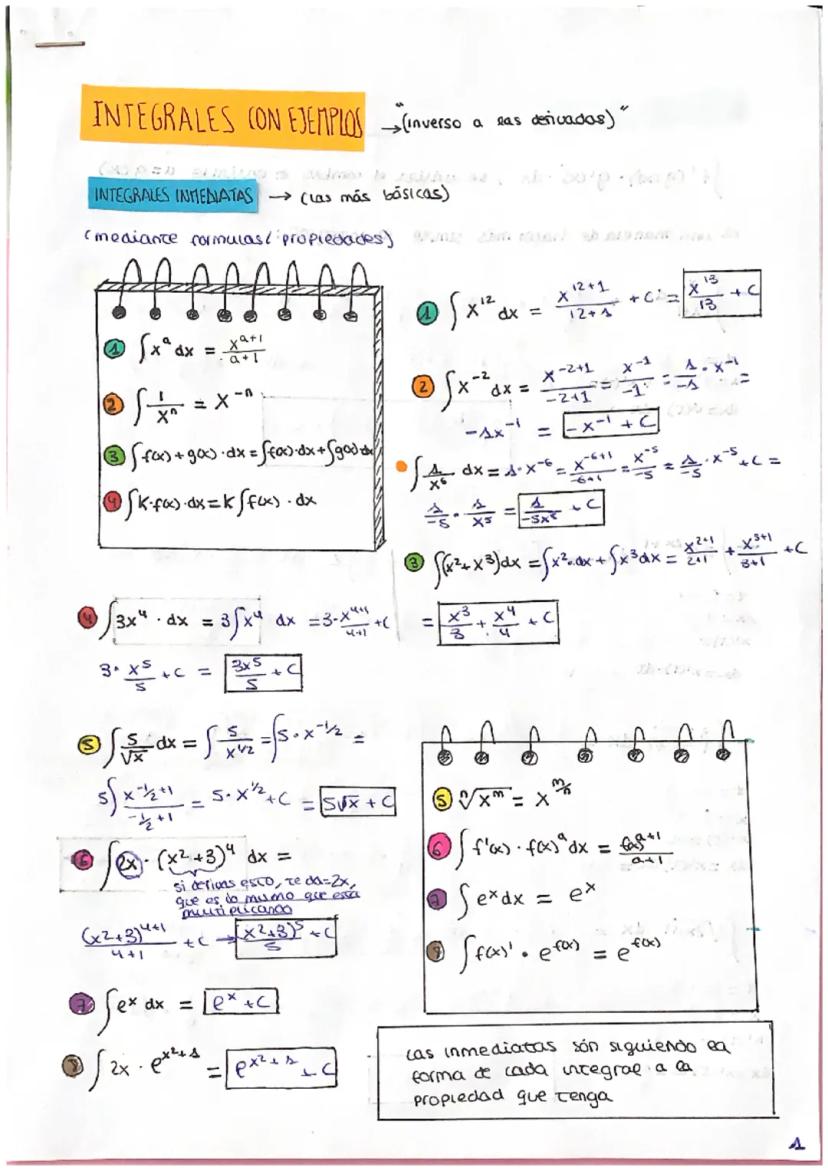 INTEGRALES CON EJEMPLOS → "(inverso a las derivadas)"
INTEGRALES INMEDIATAS → (las más básicas)
(mediante formulas/ propiedades)
1 ∫x^a dx = x^(a+1)/(a+1)
2 ∫1/x^n = x^-n
3 ∫f(x)+g(x)·dx=∫f(x)·dx+∫g(x)·dx
4 ∫K·f(x)·dx=K∫f(x)·dx
1 ∫x^12 dx = x^(12+1)/(12+1) + C = x^13/13 + C
2 ∫x^-2 dx = x^(-2+1)/(-2+1) = x^-1/-1 = 1/-1 · x^-1 =
-1x^-1 = -x^-1 + C
∫1/x^6 dx = 1·x^-6 = x^(-6+1)/(-6+1) = x^-5/-5 = 1/-5 · x^-5 + C =
1/-5 · 1/x^5 = 1/-5x^5 + C
3 ∫(x^2+x^3)dx = ∫x^2·dx + ∫x^3dx = x^(2+1)/(2+1) + x^(3+1)/(3+1) + C
= x^3/3 + x^4/4 + C
4 ∫3x^4 · dx = 3∫x^4 dx = 3·x^(4+1)/(4+1) + C
3· x^5/5 + C = 3x^5/5 + C
5 ∫5/√x dx = ∫5/x^(1/2) = ∫5·x^(-1/2) =
5∫x^(-1/2+1)/(-1/2+1) = 5·x^(1/2) + C = 5√x + C
6 ∫2x·(x^2+3)^4 dx =
si derivas esto, te da=2x,
que es lo mismo que está
multiplicando
(x^2+3)^(4+1)/(4+1) + C → (x^2+3)^5/5 + C
7 ∫e^x dx = e^x + C
8 ∫2x · e^(x^2+1) = e^(x^2+1) + C
5 ⁿ√x^m = x^(m/n)
6 ∫f'(x)·f(x)^a dx = f(x)^(a+1)/(a+1)
7 ∫e^x dx = e^x
8 ∫f(x)' · e^f(x) = e^f(x)
Las inmediatas són siguiendo la
forma de cada integral a la
propiedad que tenga
1